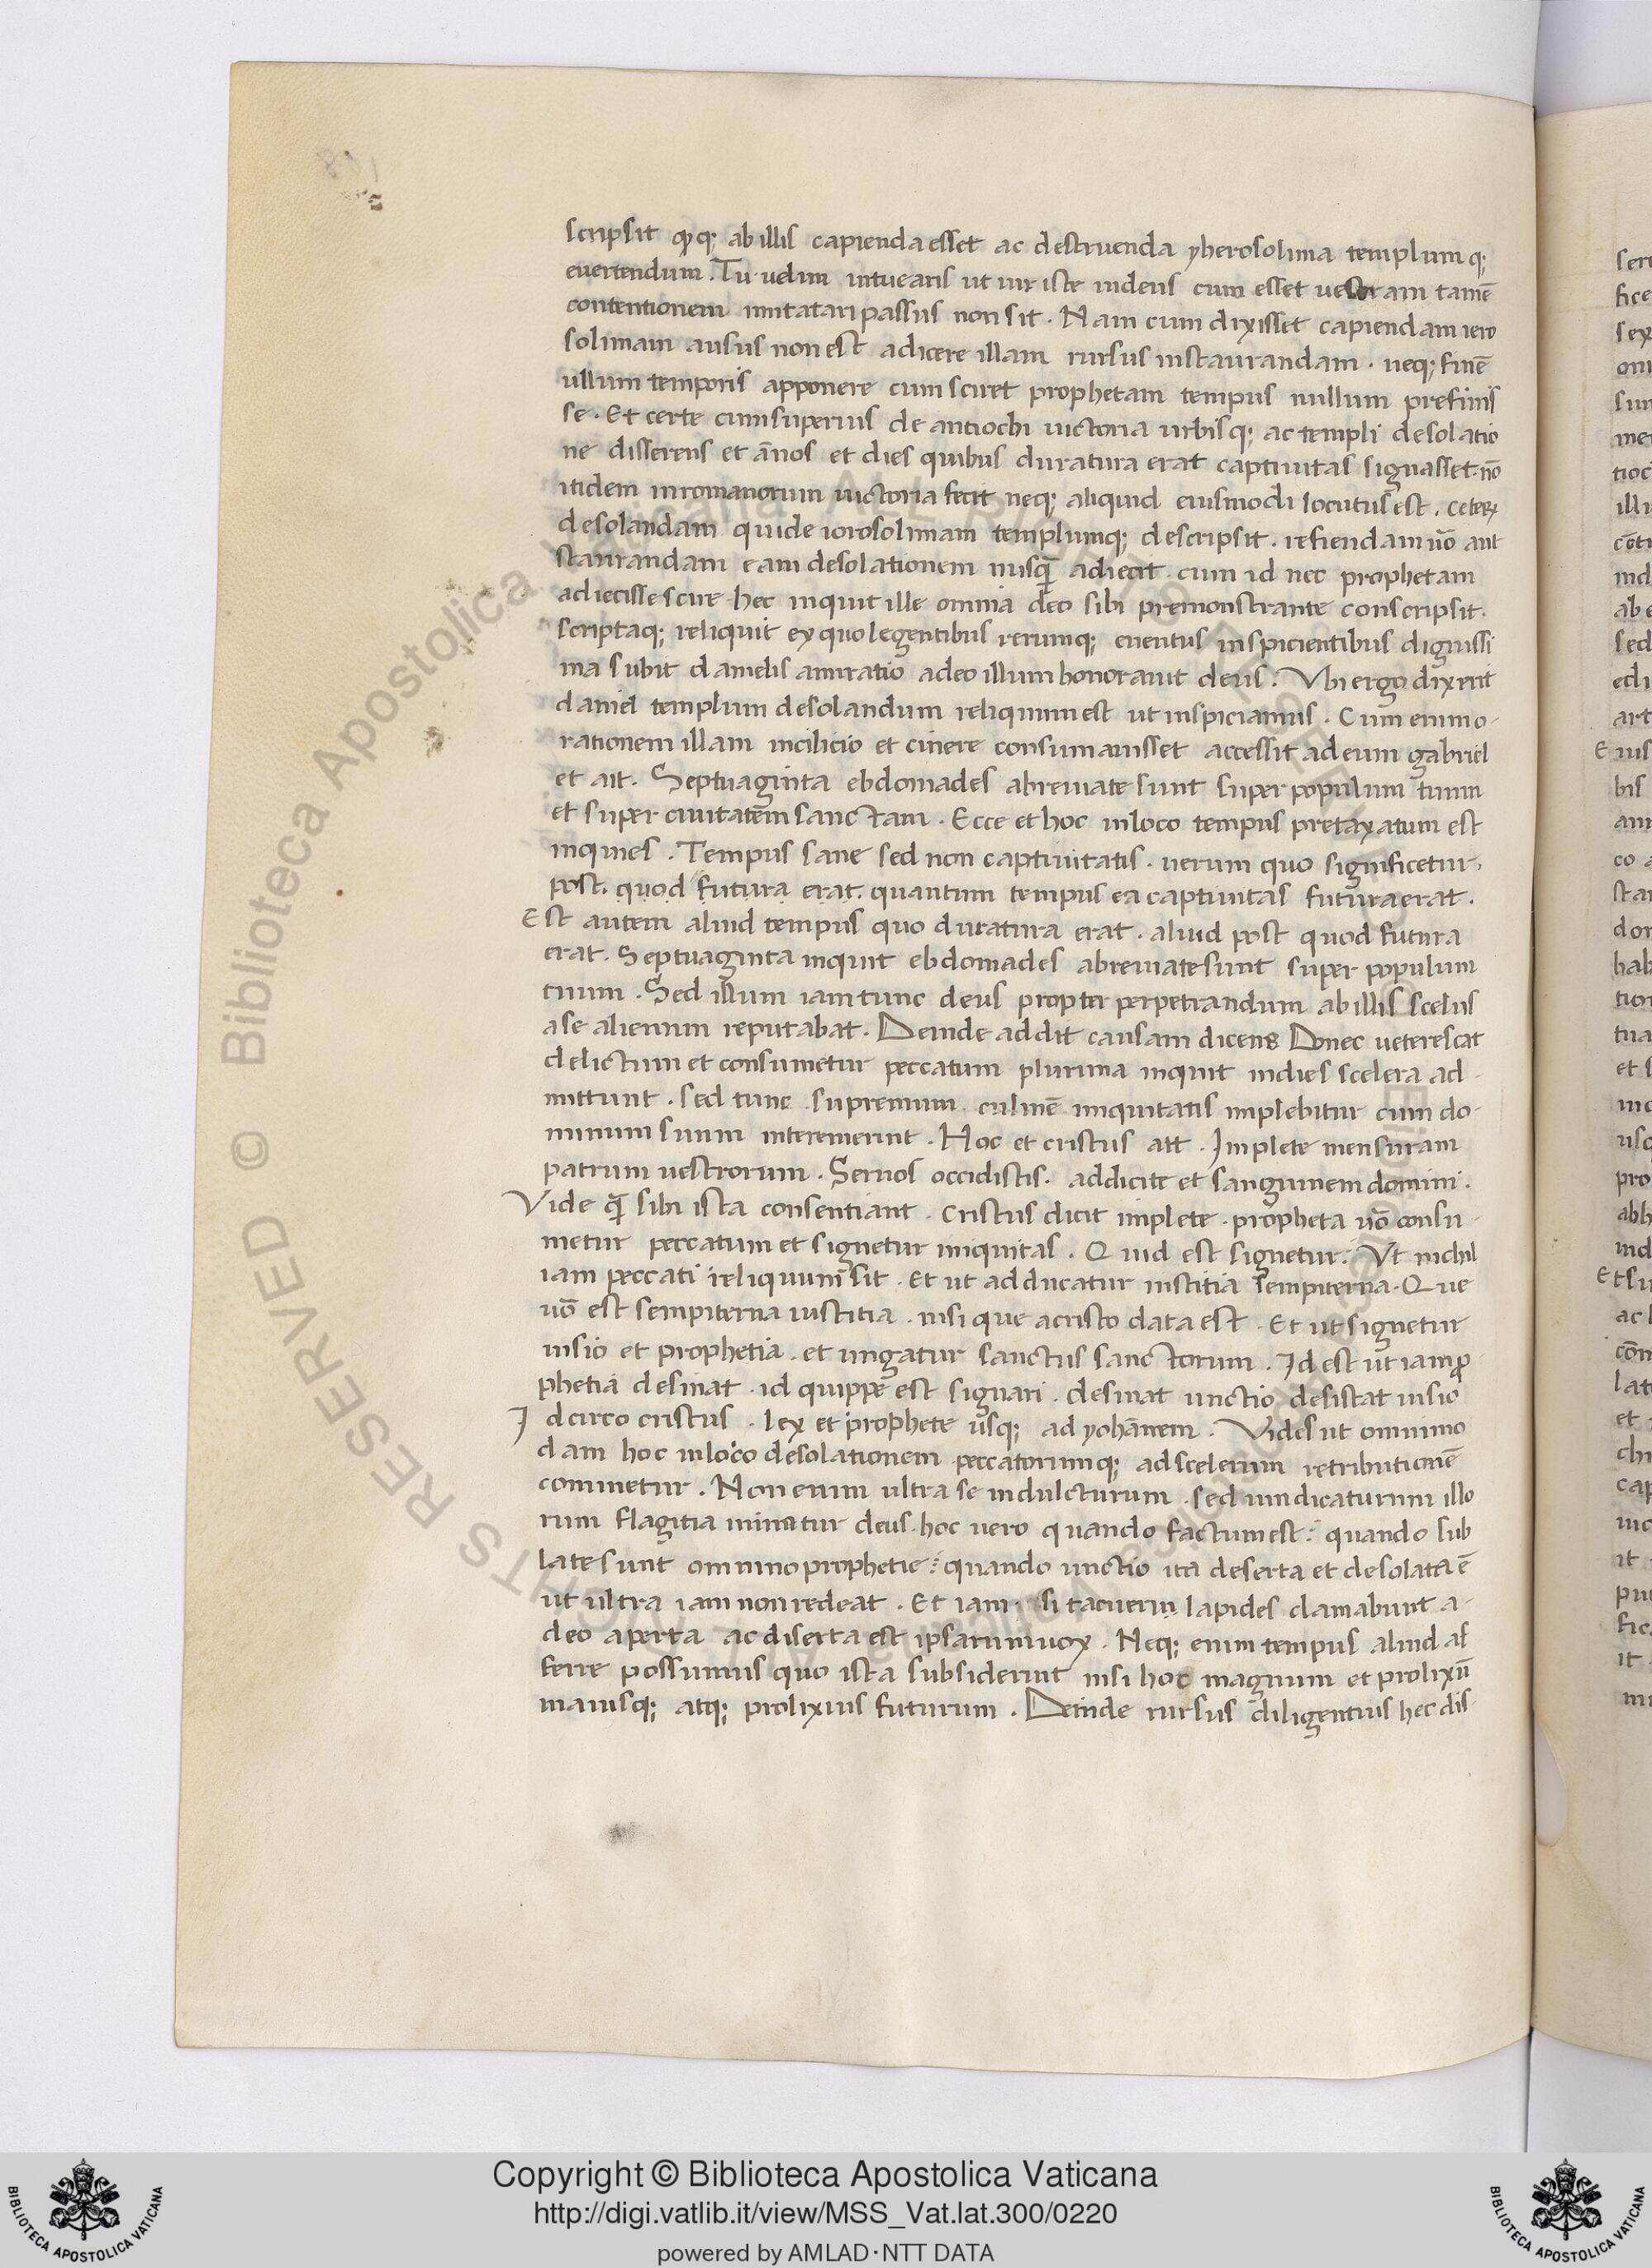 scripsit qꝫ q; ab illis capienda esset ac destruenda yherosolima templumq;
euertendum. Tu uelim intuearis ut uir iste iudeus cum esset uestram tamē
contentionem imitatari passus non sit. Nam cum dixisset capiendam iero
solimam ausus non est adicere illam rursus instaurandam. neq; finē
ullum temporis apponere cum sciret prophetam tempus nullum prefinis
se. Et certe cum superius de antiochi uictoria urbisq; ac templi desolatio
ne disserens et ānos et dies quibus duratura erat captiuitas signasset nō
itidem in romanorum uictoria fecit neq; aliquid eiusmodi locutus est. ceterꝝ
desolandam quide iorosolimam templumq; descripsit. refiendam uo᷒ aut
staurandam eam desolationem nusq̄ adiecit cum id nec prophetam
adiecisse scire hec inquit ille omnia deo sibi premonstrante conscripsit.
scriptaq; reliquit ex quo legentibus rerumq; euentus inspicientibus dignissi
ma subit danielis amiratio adeo illum honorauit deus. Vbi ergo dixerit
daniel templum desolandum reliquum est ut inspiciamus. Cum enim o-
rationem illam in cilicio et cinere consumauisset accessit ad eum gabriel
et ait. Septuaginta ebdomades abreuiate sunt super populum tuum
et super ciuitatem sanctam. Ecce et hoc in loco tempus pretaxatum est
inquies. Tempus sane sed non captiuitatis. uerum quo significetur.
post. quod futura erat. quantum tempus ea captiuitas futura erat.
Est autem aliud tempus quo duratura erat. aliud post quod futura
erat. Septuaginta inquit ebdomades abreuiate sunt super populum
tuum. Sed illum iam tunc deus propter perpetrandum ab illis scelus
a se alienum reputabat. Deinde addit causam dicens Donec ueterescat
delictum et consumetur peccatum plurima inquit indies scelera ad-
mittunt. sed tunc supremum culmē iniquitatis implebitur cum do-
minum suum interemerint. Hoc et cristus ait. Implete mensuram
patrum uestrorum. Seruos occidistis. addicite et sanguinem domini.
Vide q̄ sibi ista consentiant. Cristus dicit implete. propheta uō consu-
metur peccatum et signetur iniquitas. Quid est signetur. Vt nichil
iam peccati reliquum sit. Et ut adducatur iustitia sempiterna. Que
uō est sempiterna iustitia. nisi que a cristo data est. Et ut signetur
uisio et prophetia. et ungatur sanctus sanctorum. Id est ut iam ꝓ
phetia desinat. id quippe est signari. desinat unctio desistat uisio
Idcirco cristus. lex et prophete usq; ad yohānem. Vides ut omnimo
dam hoc in loco desolationem peccatorumq; ad scelerum retributionē
cominetur. Non enim ultra se indulcturum. sed uindicaturum illo
rum flagitia minatur deus. hoc uero quando factum est: quando sub
late sunt omnino prophetie: quando unctio ita deserta et desolata ē
ut ultra iam non redeat. Et iam si tacuerin lapides clamabunt a-
deo aperta ac diserta est ipsarum uox. Neq; enim tempus aliud af
ferre possumus quo ista subsiderint nisi hoc magnum et prolixū
maiusq; atq; prolixius futurum. Deinde rursus diligentius hec dis-
Copyright © Biblioteca Apostolica Vaticana
http://digi.vatlib.it/view/MSS_Vat.lat.300/0220
powered by AMLAD·NTT DATA